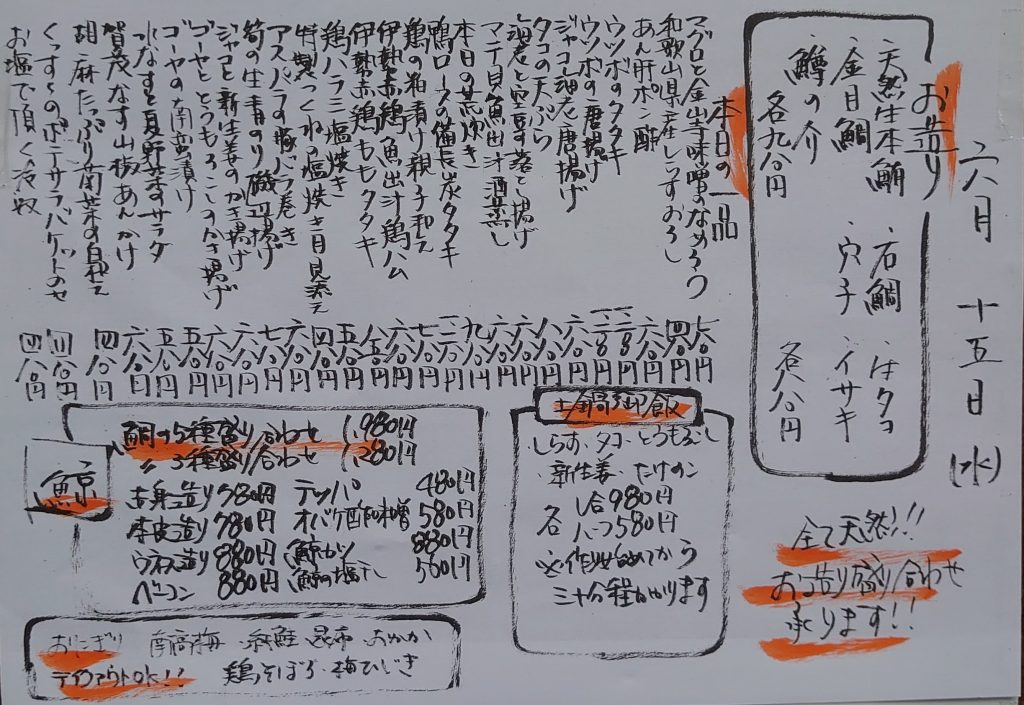 六月 十五日 (水)
お造り
・天然生本鮪 ・石鯛 ・活タコ
・金目鯛 ・穴子 ・イサキ
・鱒の介
各九八〇円 各八八〇円
全て天然!!
お造り盛り合わせ
承ります!!
本日の一品
マグロと金山寺味噌のなめろう 七八〇円
和歌山県産しらすおろし 四八〇円
あん肝ポン酢 六八〇円
ウツボのタタキ
ウツボの唐揚げ
ジャコ海老唐揚げ 六八〇円
タコの天ぷら 八八〇円
海老と空豆の落とし揚げ 六八〇円
マテ貝魚出汁酒蒸し
本日の煮付き
鴨ロースの備長炭タタキ
鶏の粕漬け親子和え 七八〇円
伊勢赤鶏 魚出汁鶏ハム 六八〇円
伊勢赤鶏ももタタキ
鶏ハラミ塩焼き 五八〇円
特製つくねの塩焼き月見添え 四八〇円
アスパラの豚バラ巻き 六八〇円
筍の生青のり磯辺揚げ 七八〇円
ジャコと新生姜のかき揚げ 六八〇円
ゴーヤととうもろこしのかき揚げ 六八〇円
ゴーヤの南蛮漬け 五八〇円
水なすと夏野菜のサラダ 五八〇円
賀茂なす山椒あんかけ 六八〇円
胡麻たっぷり南菜の白和え 四八〇円
くっすとのポテサラバケットのせ 四八〇円
お塩で頂く冷奴 四八〇円
土鍋御飯
・しらす・タコ・とうもろこし
・新生姜・たけのこ
各 一合980円
ハーフ580円
※作り始めてから
三十分程かかります
鯨
鯨の5種盛り合わせ 1,980円
〃 3種盛り合わせ 1,280円
赤身造り 780円 テッパ 480円
本皮造り 780円 オバケ酢味噌 580円
ウネス造り 880円 鯨かつ 880円
ベーコン 880円 鯨の塩干し 580円
おにぎり 南高梅 ・紅鮭 昆布 おかか
テイクアウトOK!! 鶏そぼろ ・梅ひじき